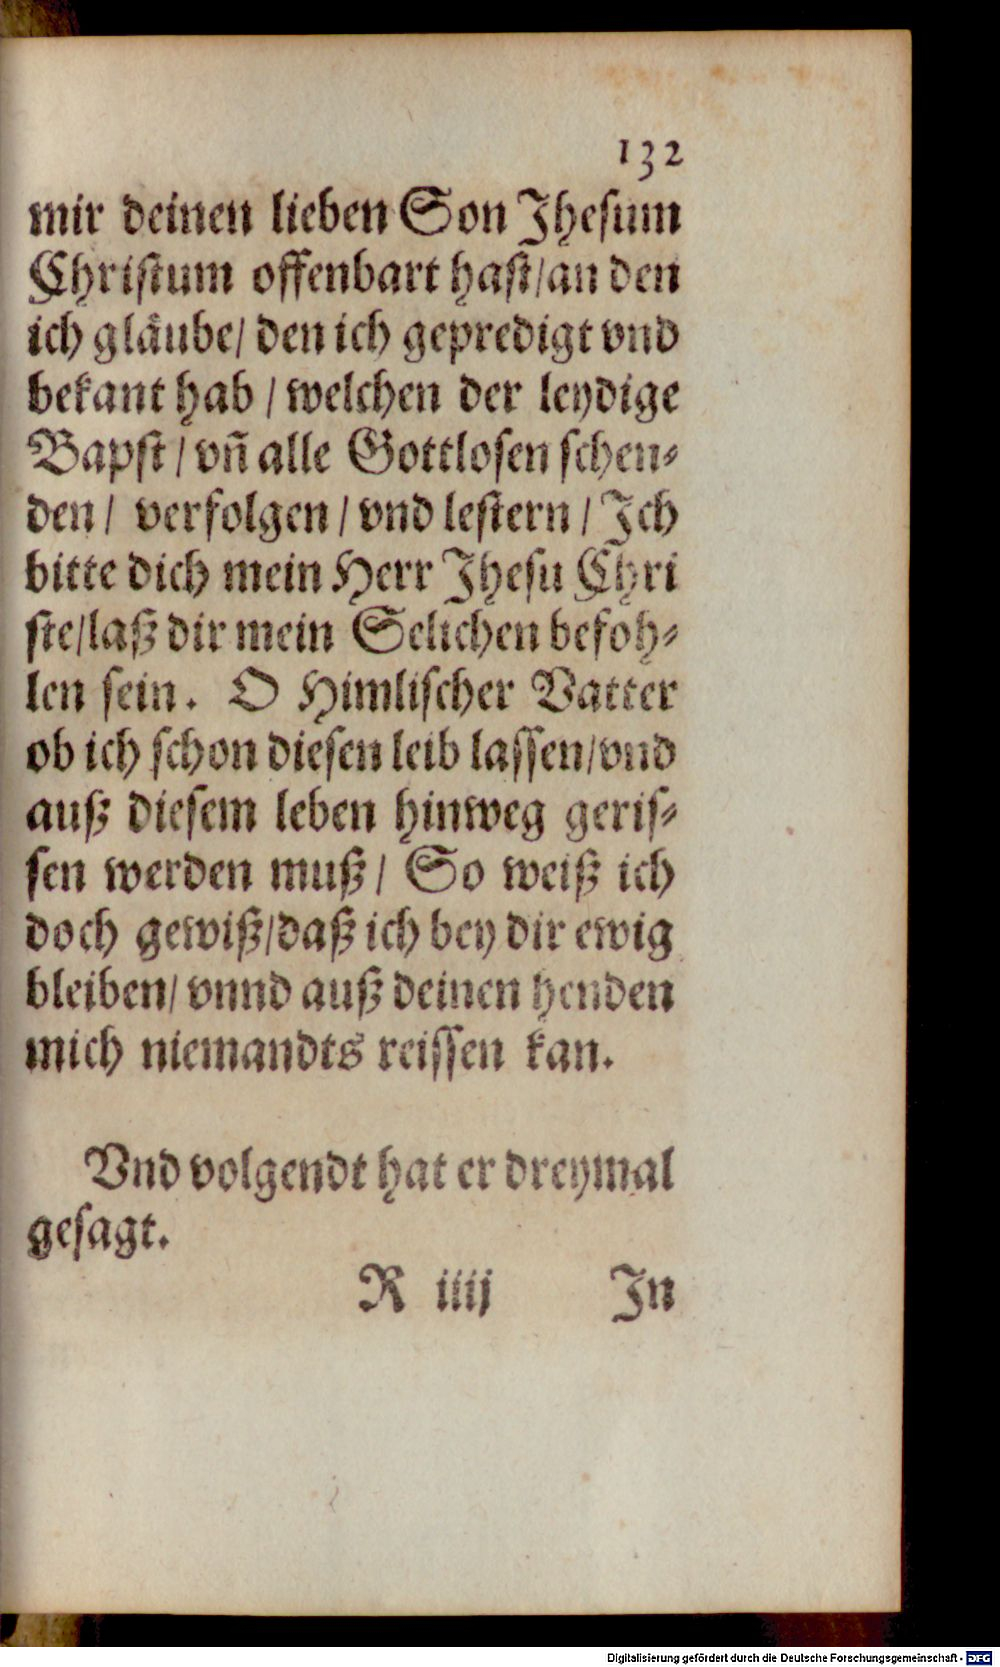 132
mir deinen lieben Son Jhesum
Christum offenbart hast/an den
ich glaͤube/ den ich gepredigt vnd
bekant hab / welchen der leydige
Bapst / vñ alle Gottlosen schen⸗
den / verfolgen / vnd lestern / Jch
bitte dich mein Herr Jhesu Chri
ste/laß dir mein Selichen befoh⸗
len sein. O Himlischer Vatter
ob ich schon diesen leib lassen/vnd
auß diesem leben hinweg geris⸗
sen werden muß / So weiß ich
doch gewiß/daß ich bey dir ewig
bleiben/ vnnd auß deinen henden
mich niemandts reissen kan.
Vnd volgendt hat er dreymal
gesagt.
R iiij Jn
Digitalisierung gefördert durch die Deutsche Forschungsgemeinschaft - DFG